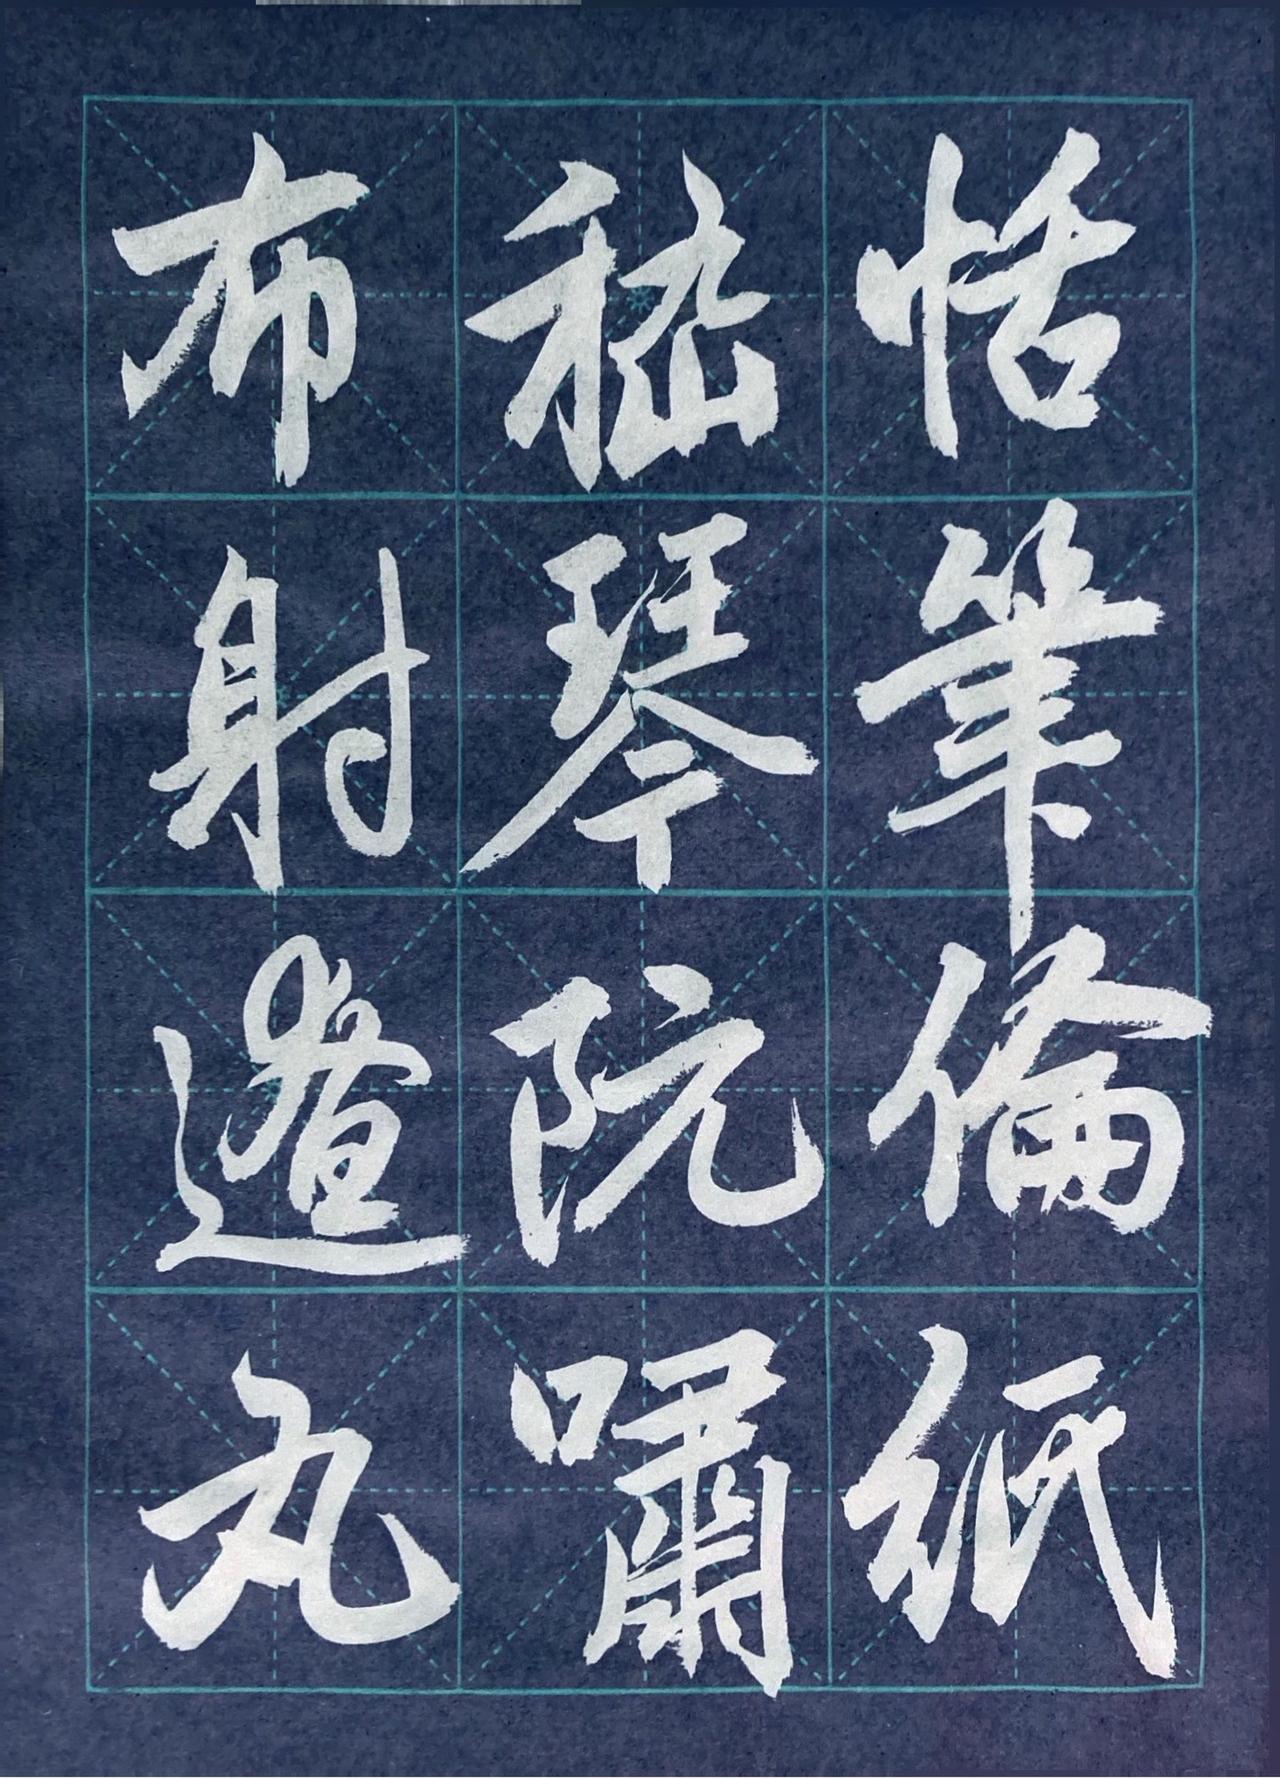 布射遼丸
嵇琴阮嘯
恬筆倫紙